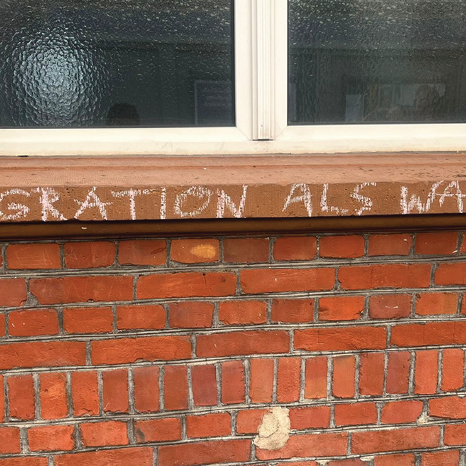 GRATION ALS WA